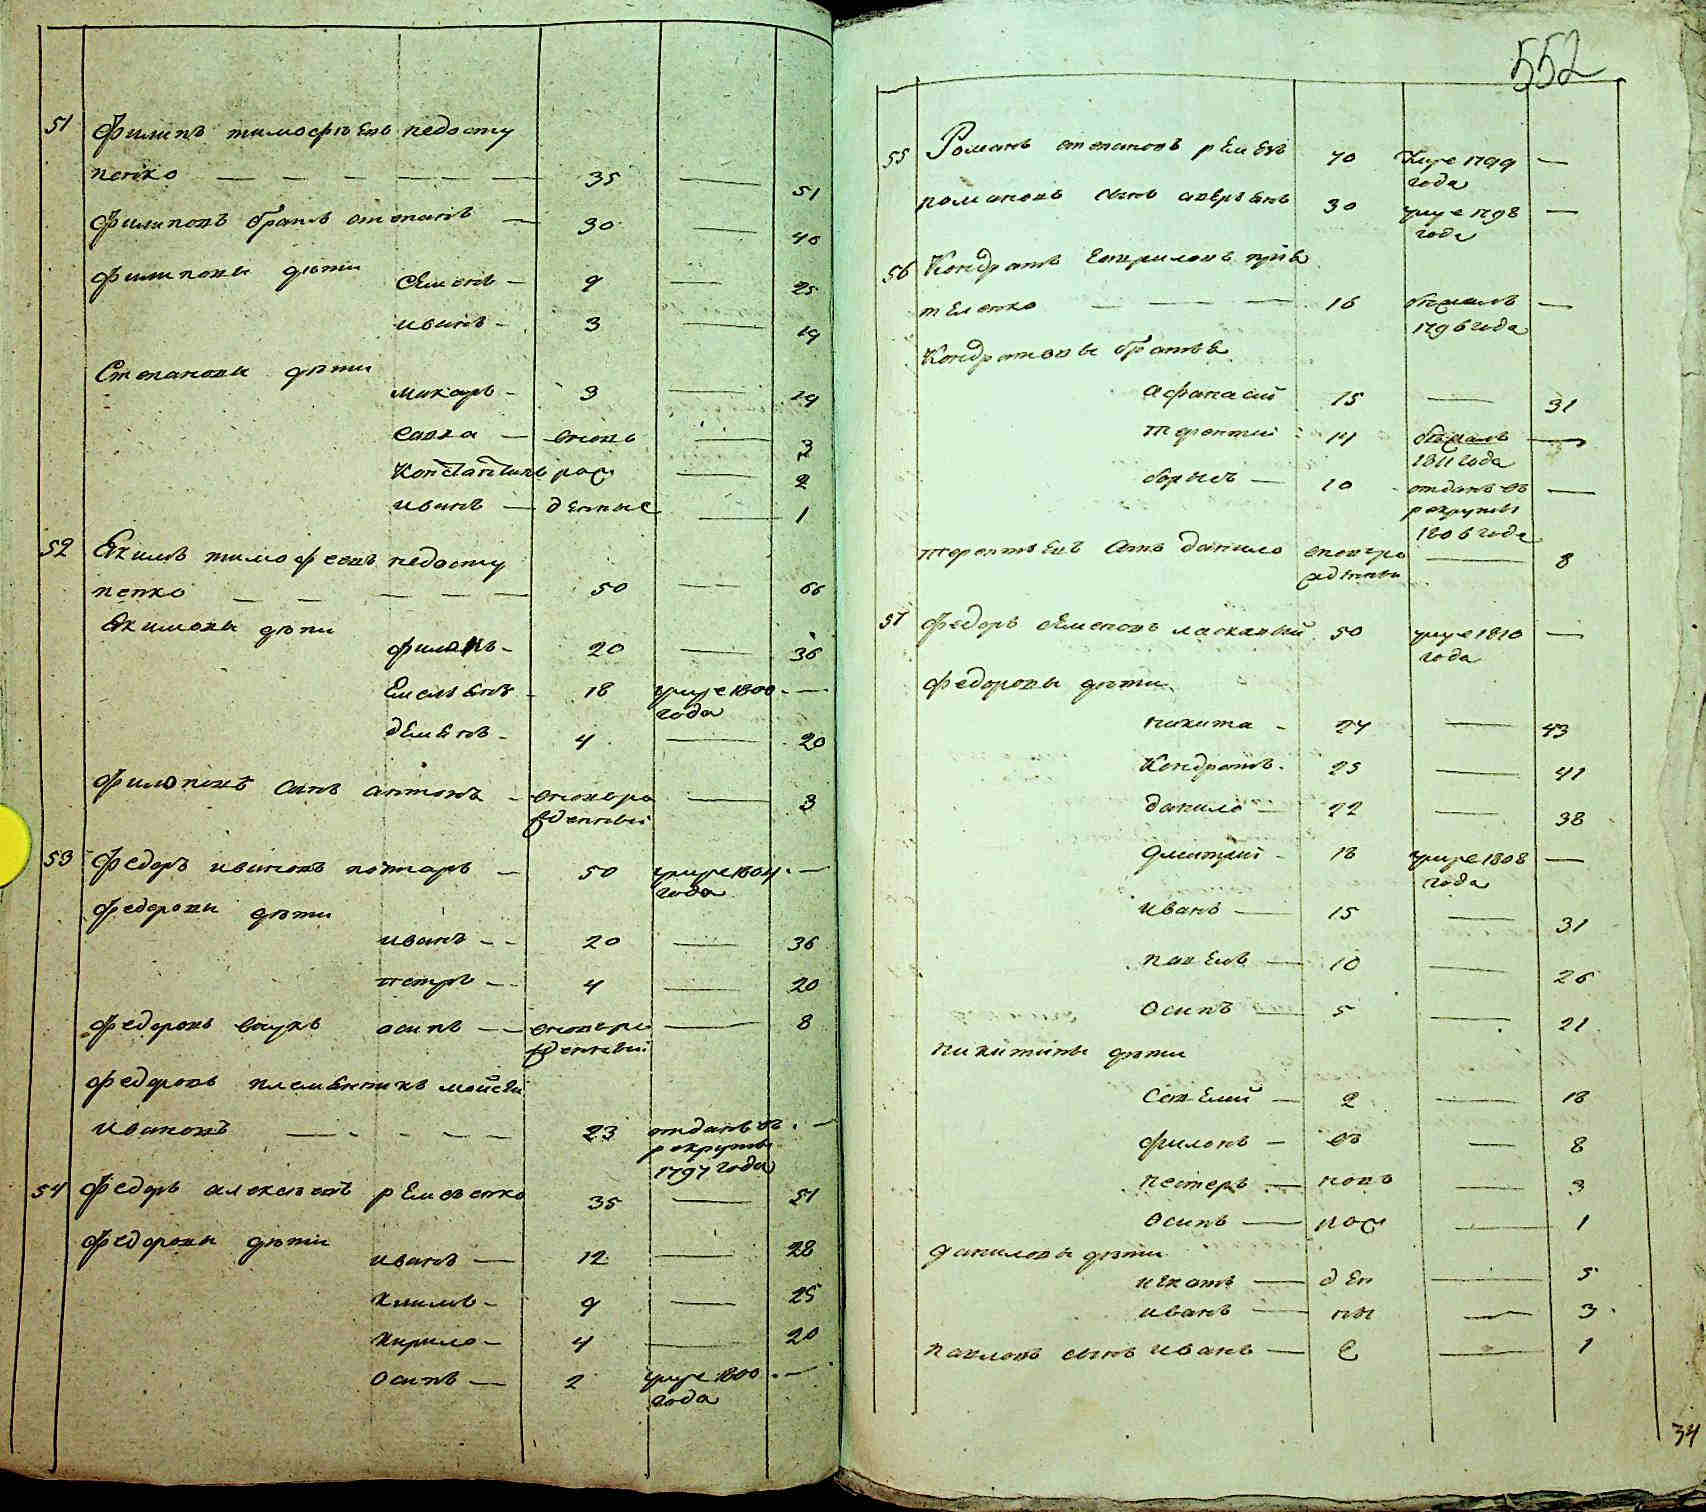 51 Филипъ тимофѣевъ недосту
пенко — 35 — 51
Филиповъ братъ степанъ — 30 — 46
филиповы дѣти Семенъ — 9 — 25
иванъ — 3 — 19
Степановы дѣти
макаръ — 3 — 19
савка — вновь — 3
Константинъ рож — 2
иванъ — денные — 1
52 Екимъ тимофеевъ недосту
пенко — 50 — 66
Екимовы дѣти
филонъ — 20 — 36
Емельянъ — 18 умре 1800 —
года
демьянъ — 4 — 20
филоновъ сынъ антонъ — вновьро — 3
жденный
53 Федоръ ивановъ 50 умре 1804 —
года
федоровы дѣти
иванъ — 20 — 36
петръ — 4 — 20
федоровъ внукъ осипъ — вновьро — 8
жденный
федоровъ племянникъ мойсей
ивановъ — 23 отданъ въ —
рекруты
1797 года
54 Федоръ алексеевъ ремезенко 35 — 51
федоровы дѣти
иванъ — 12 — 28
климъ — 9 — 25
кирило — 4 — 20
осипъ — 2 умре 1800 —
года
552
55 Романъ степановъ ремезъ 70 умре 1799 —
года
романовъ сынъ аверьянъ 30 умре 1798 —
года
56 Кондратъ Гавриловъ прія
теленко — 16 бѣжалъ —
1796 года
Кондратовы братья
афанасій 15 — 31
терентий 14 бѣжалъ —
1811 года
борисъ — 10 отданъ въ —
рекруты
1806 года
терентьевъ сынъ данило вновьро — 8
жденны
57 Федоръ семеновъ ласкавый 50 умре 1810 —
года
федоровы дѣти
никита — 27 — 43
Кондратъ — 25 — 41
данило — 22 — 38
дмитрий — 18 умре 1808 —
года
иванъ — 15 — 31
павелъ — 10 — 26
осипъ — 5 — 21
никитины дѣти
Савелий — 2 — 18
филонъ — въ — 8
нестеръ — новь — 3
осипъ — рож — 1
даниловы дѣти
игнатъ — ден — 5
иванъ — ны — 3
павловъ сынъ иванъ — е — 1
34